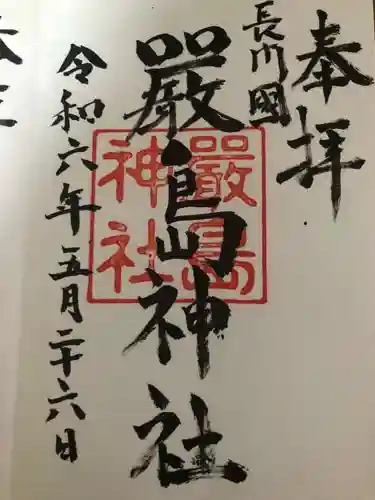 奉拝
長州國
嚴島神社
嚴島神社
令和六年五月二十六日